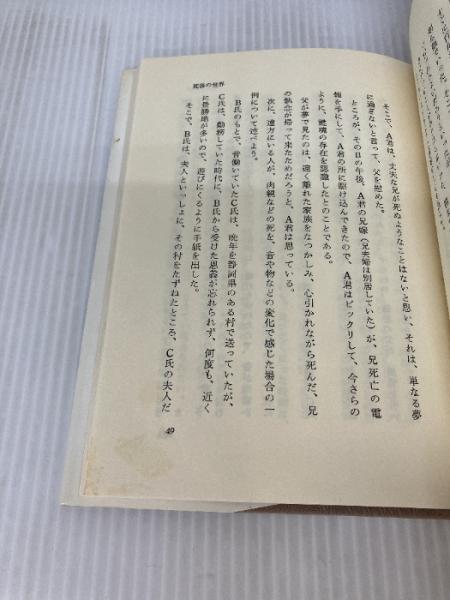 死後の世界
そこで、A君は、丈夫な兄が死ぬようなことはないと思い、それは、単なる夢
に過ぎないと言って、父を慰めた。
ところが、その日の午後、A君の兄嫁（兄夫婦は別居していた）が、兄死亡の電
報を手にして、A君の所に駆け込んできたので、A君はビックリして、今さらの
ように、霊魂の存在を認識したとのことである。
父が夢で見たのは、遠く離れた家族をなつかしみ、心引かれながら死んだ、兄
の執念が帰って来たためだろうと、A君は思っている。
次に、遠方にいる人が、肉親などの死を、音や物などの変化で感じた場合の一
例について述べよう。
B氏のもとで、昔働いていたC氏は、晩年を静岡県のある村で送っていたが、
C氏は、勤務していた時代に、B氏から受けた恩義が忘れられず、何度も、近く
に景勝地が多いので、遊びにくるように手紙を出した。
そこで、B氏は、夫人といっしょに、その村をたずねたところ、C氏の夫人だ
49